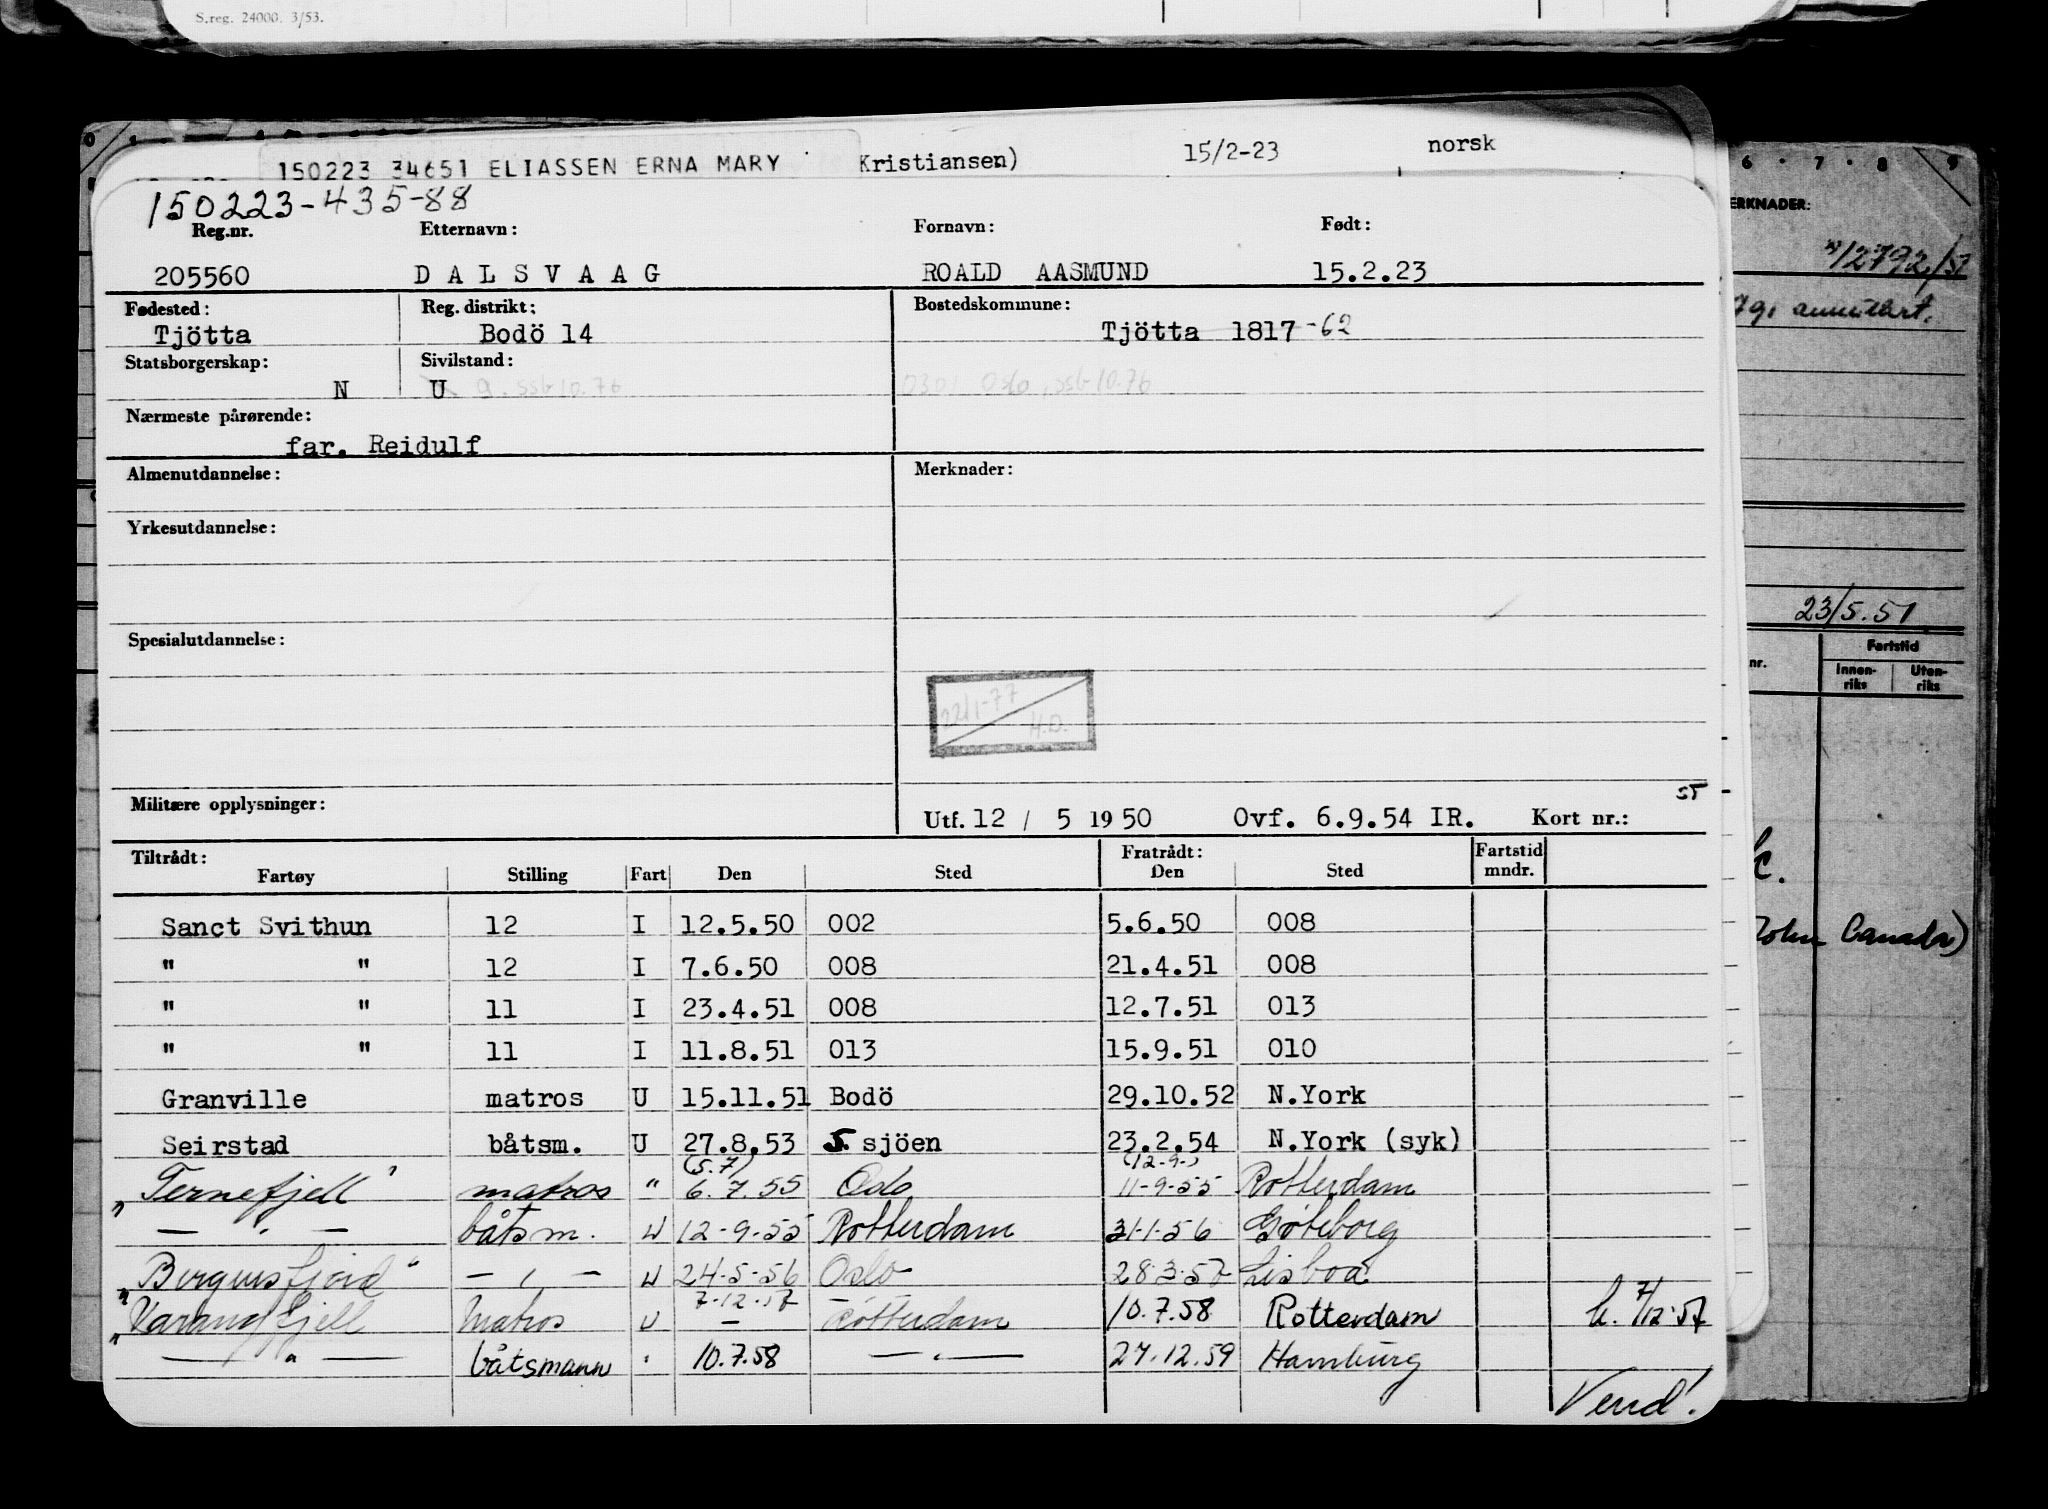 S.reg. 24000. 3/53.
150223 34651 ELIASSEN ERNA MARY Kristiansen) 15/2-23 norsk
6 7 8 9
150223-435-88
Reg.nr. Etternavn: Fornavn: Født:
205560 DALSVAAG ROALD AASMUND 15.2.23
Fødested: Reg. distrikt: Bostedskommune:
Tjötta Bodö 14 Tjötta 1817-62
Statsborgerskap: Sivilstand:
N U g. ssb 10.76 0301 Oslo, ssb 10.76
Nærmeste pårørende:
far. Reidulf
Almenutdannelse: Merknader:
Yrkesutdannelse:
Spesialutdannelse:
22/1-77
H.D.
Militære opplysninger:
55
Utf. 12 / 5 1950 Ovf. 6.9.54 IR. Kort nr.:
Tiltrådt: Fratrådt: Fartstid
Fartøy Stilling Fart Den Sted Den Sted mndr.
Sanct Svithun 12 I 12.5.50 002 5.6.50 008
" " 12 I 7.6.50 008 21.4.51 008
" " 11 I 23.4.51 008 12.7.51 013
" " 11 I 11.8.51 013 15.9.51 010
Granville matros U 15.11.51 Bodö 29.10.52 N.York
Seirstad båtsm. U 27.8.53 S. sjöen 23.2.54 N.York (syk)
(5.7) (12-9-)
"Ternefjell" matros " 6.7.55 Oslo 11-9-55 Rotterdam
— " — båtsm. U 12-9-55 Rotterdam 31-1-56 Göteborg
"Bergensfjord" — " — U 24-5-56 Oslo 28-3-57 Lisboa
7-12-57
"Varangfjell Matros U — Rotterdam 10.7.58 Rotterdam h. 7/12-57
— " — båtsmann " 10.7.58 — " — 27.12.59 Hamburg
Vend!
ERKNADER:
12792/57
23/5.51
nr. Fartstid
Innen-riks Uten-riks
John Canada)